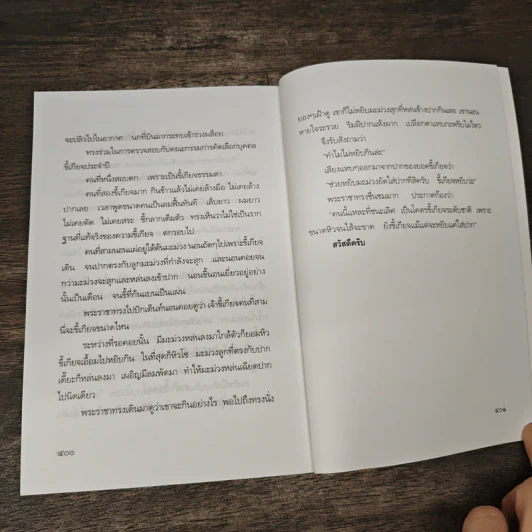 จะปลิวไปในอากาศ นกที่บินมากระทบเข้าร่วงผล็อย
ทรงร่วมในการตรวจสอบกับคณะกรรมการคัดเลือกบุคคล
ขี้เกียจประจำปี
คนที่หนึ่งสอบตก เพราะเป็นขี้เกียจธรรมดา
คนที่สองขี้เกียจมาก กินข้าวแล้วไม่เคยล้างมือ ไม่เคยล้าง
ปากเลย เวลาพูดขนาดคนเป็นลมฟื้นทันที เล็บยาว ผมยาว
ไม่เคยตัด ไม่เคยสระ ขี้กลากเต็มตัว ทรงเห็นว่าไม่ใช่เป็นราก
ฐานที่แท้จริงของความขี้เกียจ ตกรอบไป
คนที่สามนอนแผ่อยู่ใต้ต้นมะม่วง นอนถัดๆไปเพราะขี้เกียจ
เดิน จนปากตรงกับลูกมะม่วงที่กำลังจะสุก และนอนคอยจน
กว่ามะม่วงจะสุกและหล่นลงเข้าปาก นอนขี้นอนเยี่ยวอยู่อย่าง
นั้นเป็นเดือน จนขี้ที่ก้นแบนเป็นแผ่น
พระราชาทรงไปปักเต็นท์นอนคอยดูว่า เจ้าขี้เกียจคนที่สาม
นี่จะขี้เกียจขนาดไหน
ระหว่างที่รอคอยนั้น มีมะม่วงหล่นลงมาใกล้ตัวก็ยอมหิว
ขี้เกียจเอื้อมไปหยิบกิน ในที่สุดก็หิวโซ มะม่วงลูกที่ตรงกับปาก
เดี๊ยะก็หล่นลงมา เผอิญมีลมพัดมา ทำให้มะม่วงหล่นเฉียดปาก
ไปนิดเดียว
พระราชาทรงเดินมาดูว่าเขาจะกินอย่างไร พอไปถึงทรงนั่ง
๔๐๐
ยองๆเฝ้าดู เขาก็ไม่หยิบมะม่วงสุกที่หล่นข้างปากกินเลย เขานอน
หายใจระรวย ริมฝีปากแห้งผาก เปลือกตาแทบกะพริบไม่ไหว
จึงรับสั่งถามว่า
"ทำไมไม่หยิบกินล่ะ"
เสียงแหบๆออกมาจากปากของยอดขี้เกียจว่า
"ช่วยหยิบมะม่วงยัดใส่ปากทีสิครับ ขี้เกียจหยิบว่ะ"
พระราชาทรงชื่นชมมาก ประกาศก้องว่า
"คนนี้แหละที่ชนะเลิศ เป็นโคตรขี้เกียจระดับชาติ เพราะ
ขนาดหิวจนไส้จะขาด ยังขี้เกียจแม้แต่จะหยิบแดกใส่ปาก"
สวัสดีครับ
๔๐๑